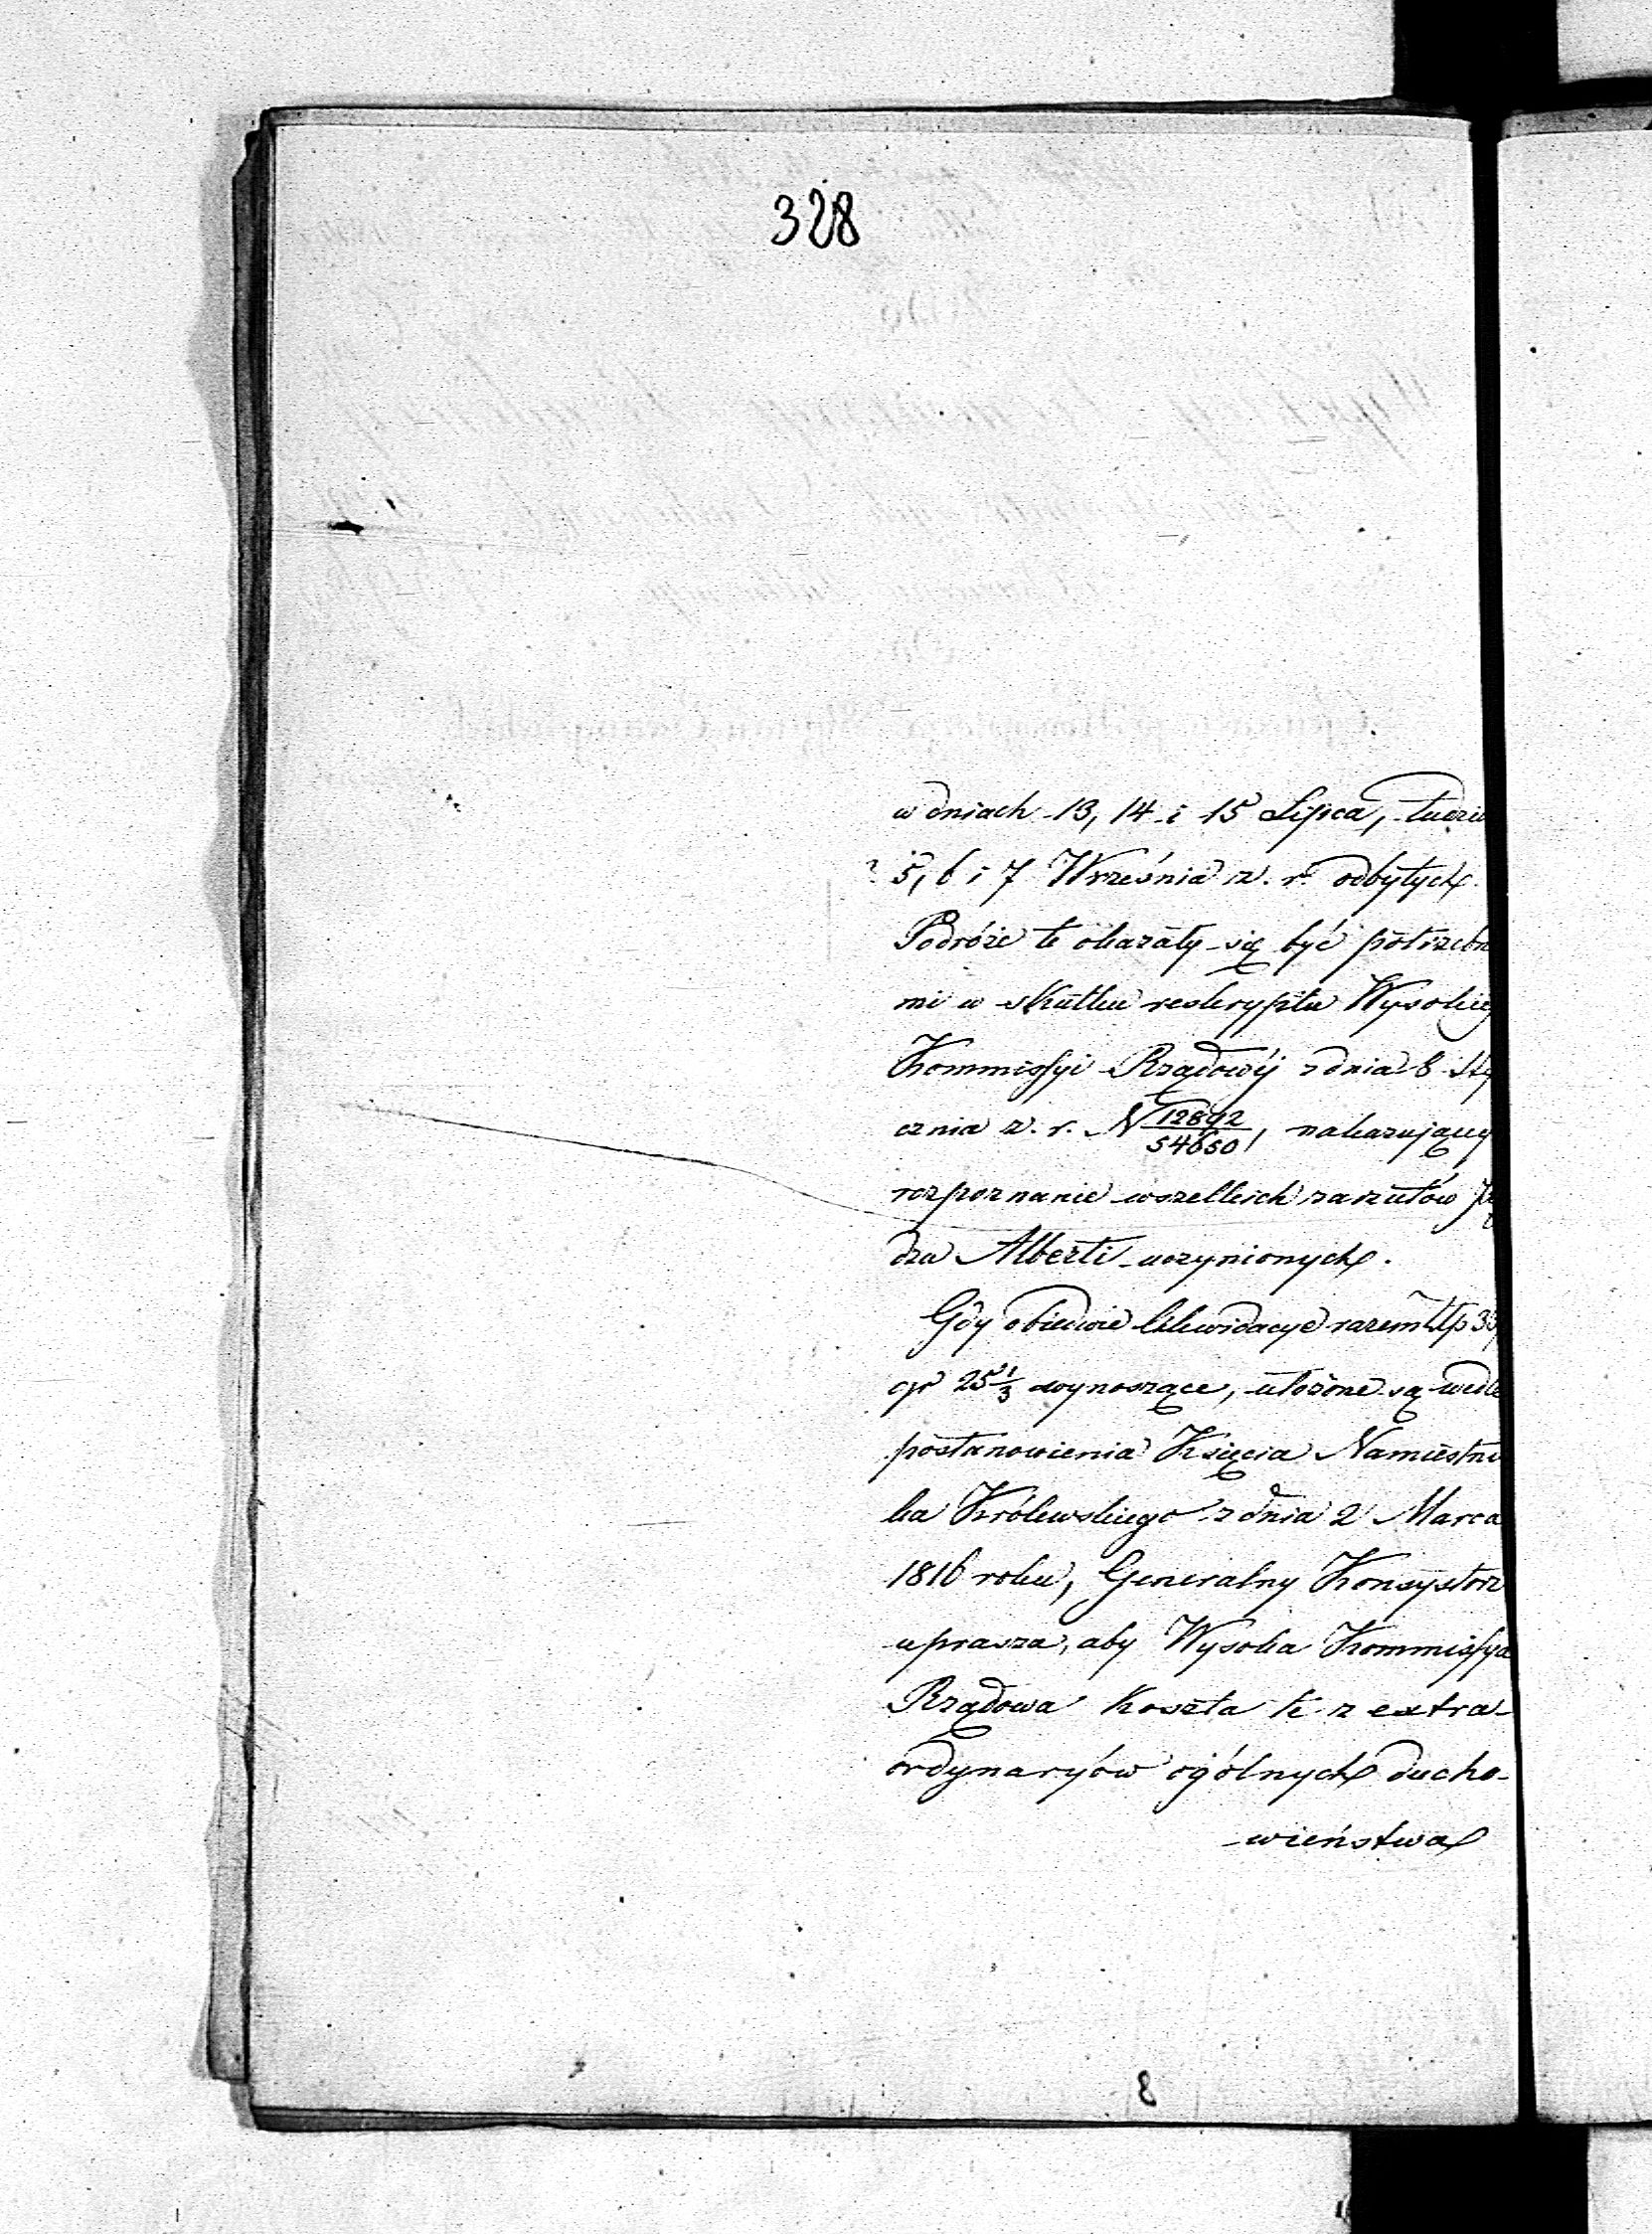 328
w dniach 13, 14 i 15 Lipca, tudzie
5, 6 i 7 Września z. r. odbytych.
Podróże te okazały się być potrzebn
mi w skutku reskryptu Wysokiey
Kommissyi Rządowéj z dnia 8 Sty
cznia z. r. N 12892/54650, nakazujący
rozpoznanie wszelkich zarzutów
dzu Alberti uczynionych.
Gdy obiedwie likwidacye razem Złp 33
gr 25 1/3 wynoszące, ułożone są wedle
postanowienia Księcia Namiestni
ka Królewskiego z dnia 2 Marca
1816 roku, Generalny Konsystorz
uprasza, aby Wysoka Kommissya
Rządowa koszta te z extra-
ordynaryów ogólnych ducho-
wieństwa
8